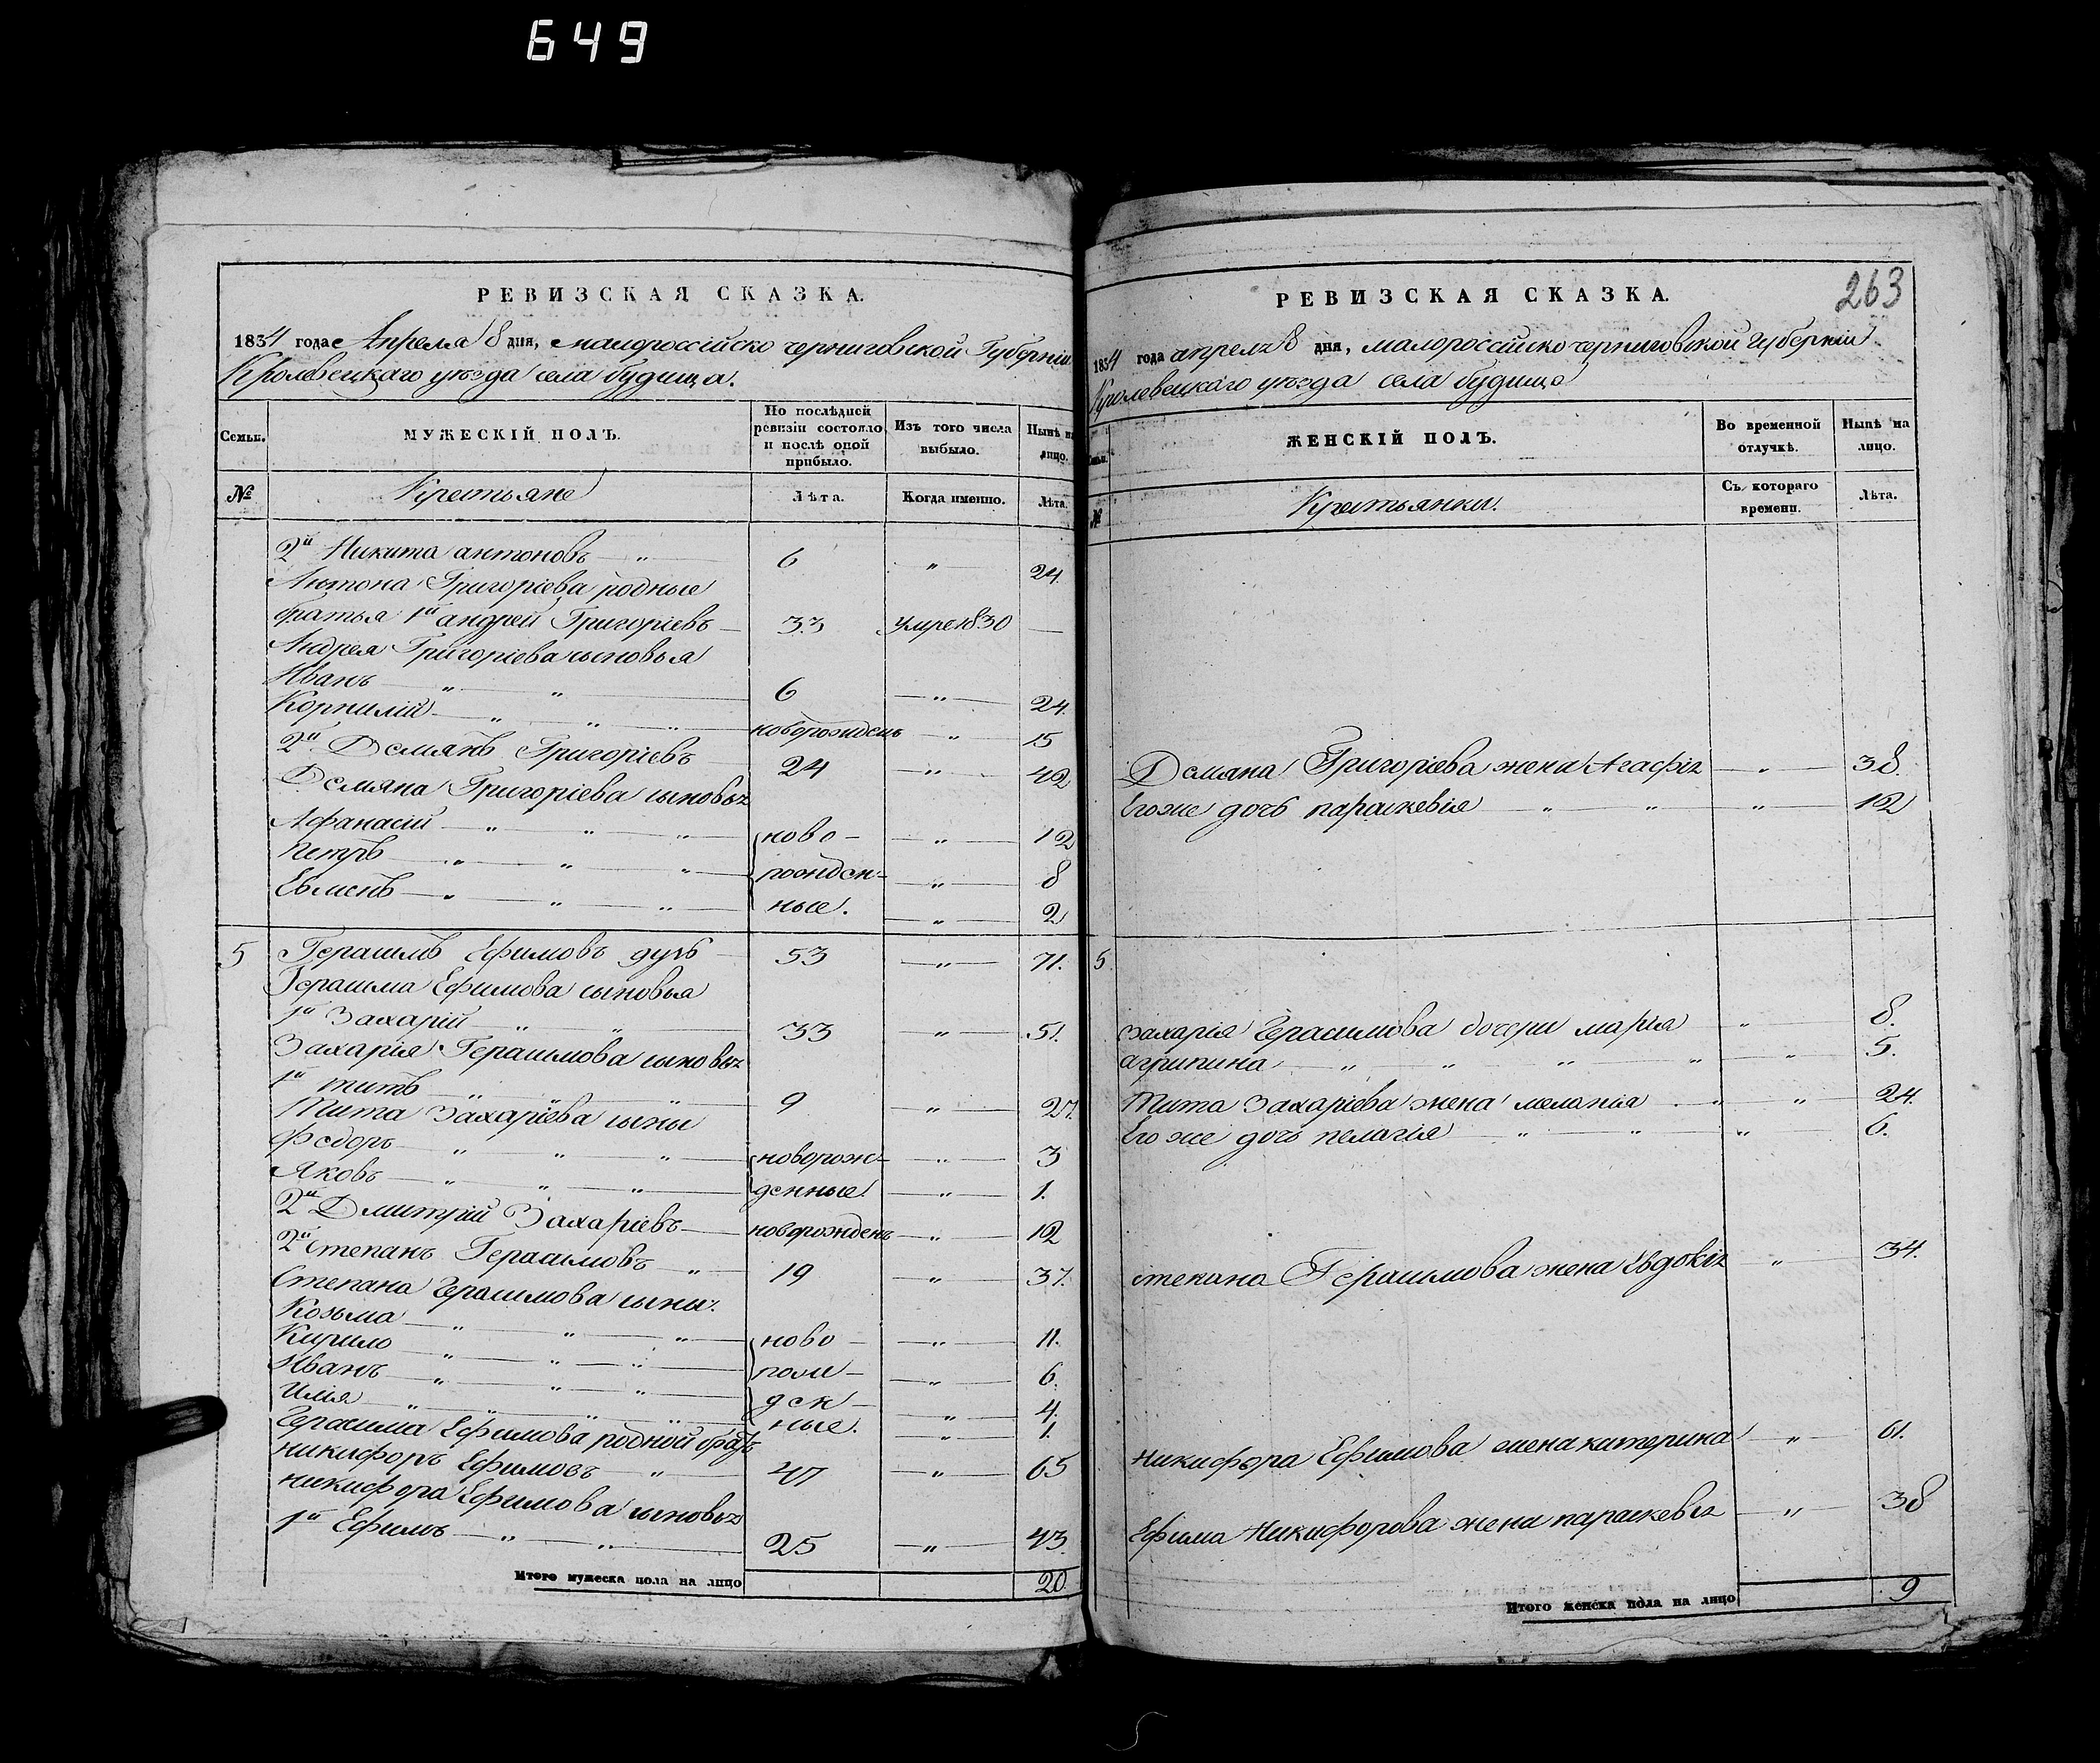 649
РЕВИЗСКАЯ СКАЗКА.
1834 года Апреля 8 дня, малороссійско черниговской Губерніи
Кролевецкаго уезда села будища.
Семьи.
МУЖЕСКІЙ ПОЛЪ.
По послѣдней ревизіи состояло и послѣ оной прибыло.
Изъ того числа выбыло.
Нынѣ на лицо.
№
Крестьяне
Лѣта.
Когда именно.
Лѣта.
2й Никита антоновъ — 6 — 24.
Антона Григоріева родные
братья 1й андрей Григоріевъ — 33 умре 1830 —
Андрея Григоріева сыновья
Иванъ — 6 — 24.
Корнилій — новорожденъ — 15
2й Демянъ Григоріевъ 24 — 42
Демяна Григоріева сыновья
Афанасій — ново- — 12
Петръ — рожден- — 8
Евменъ — ные. — 2
5 Герасимъ Ефимовъ 53 — 71.
Герасима Ефимова сыновья
1й Захарій — 33 — 51.
Захарія Герасимова сыновья
1й титъ — 9 — 27.
Тита Захаріева сыны
Федоръ — новорож- — 3
Яковъ — денные. — 1.
2й Дмитрій Захаріевъ — новорожденъ — 12
2й степанъ Герасимовъ — 19 — 37.
Степана Герасимова сыны.
Козьма — ново- — 11.
Кирило — рож- — 6.
Иванъ — ден- — 4.
Илія — ные. — 1.
Герасима Ефимова родной братъ
никифоръ Ефимовъ — 47 — 65
никифора Ефимова сыновья
1й Ефимъ — 25 — 43.
Итого мужеска пола на лицо 20.
263
РЕВИЗСКАЯ СКАЗКА.
1834 года апреля 8 дня, малороссійско черниговской губерніи
Кролевецкаго уезда села будища
Семьи.
ЖЕНСКІЙ ПОЛЪ.
Во временной отлучкѣ.
Нынѣ на лицо.
№
Крестьянки.
Съ котораго времени.
Лѣта.
Демяна Григоріева жена Агафія — 38.
Егоже дочь параскевія — 12
5.
Захарія Герасимова дочери марія — 8.
агрипина — 5.
Тита Захаріева жена меланія — 24.
Его же дочь пелагія — 6.
степана Герасимова жена Евдокія — 34.
никифора Ефимова жена катерина — 61.
Ефима Никифорова жена параскевія — 38
Итого женска пола на лицо 9